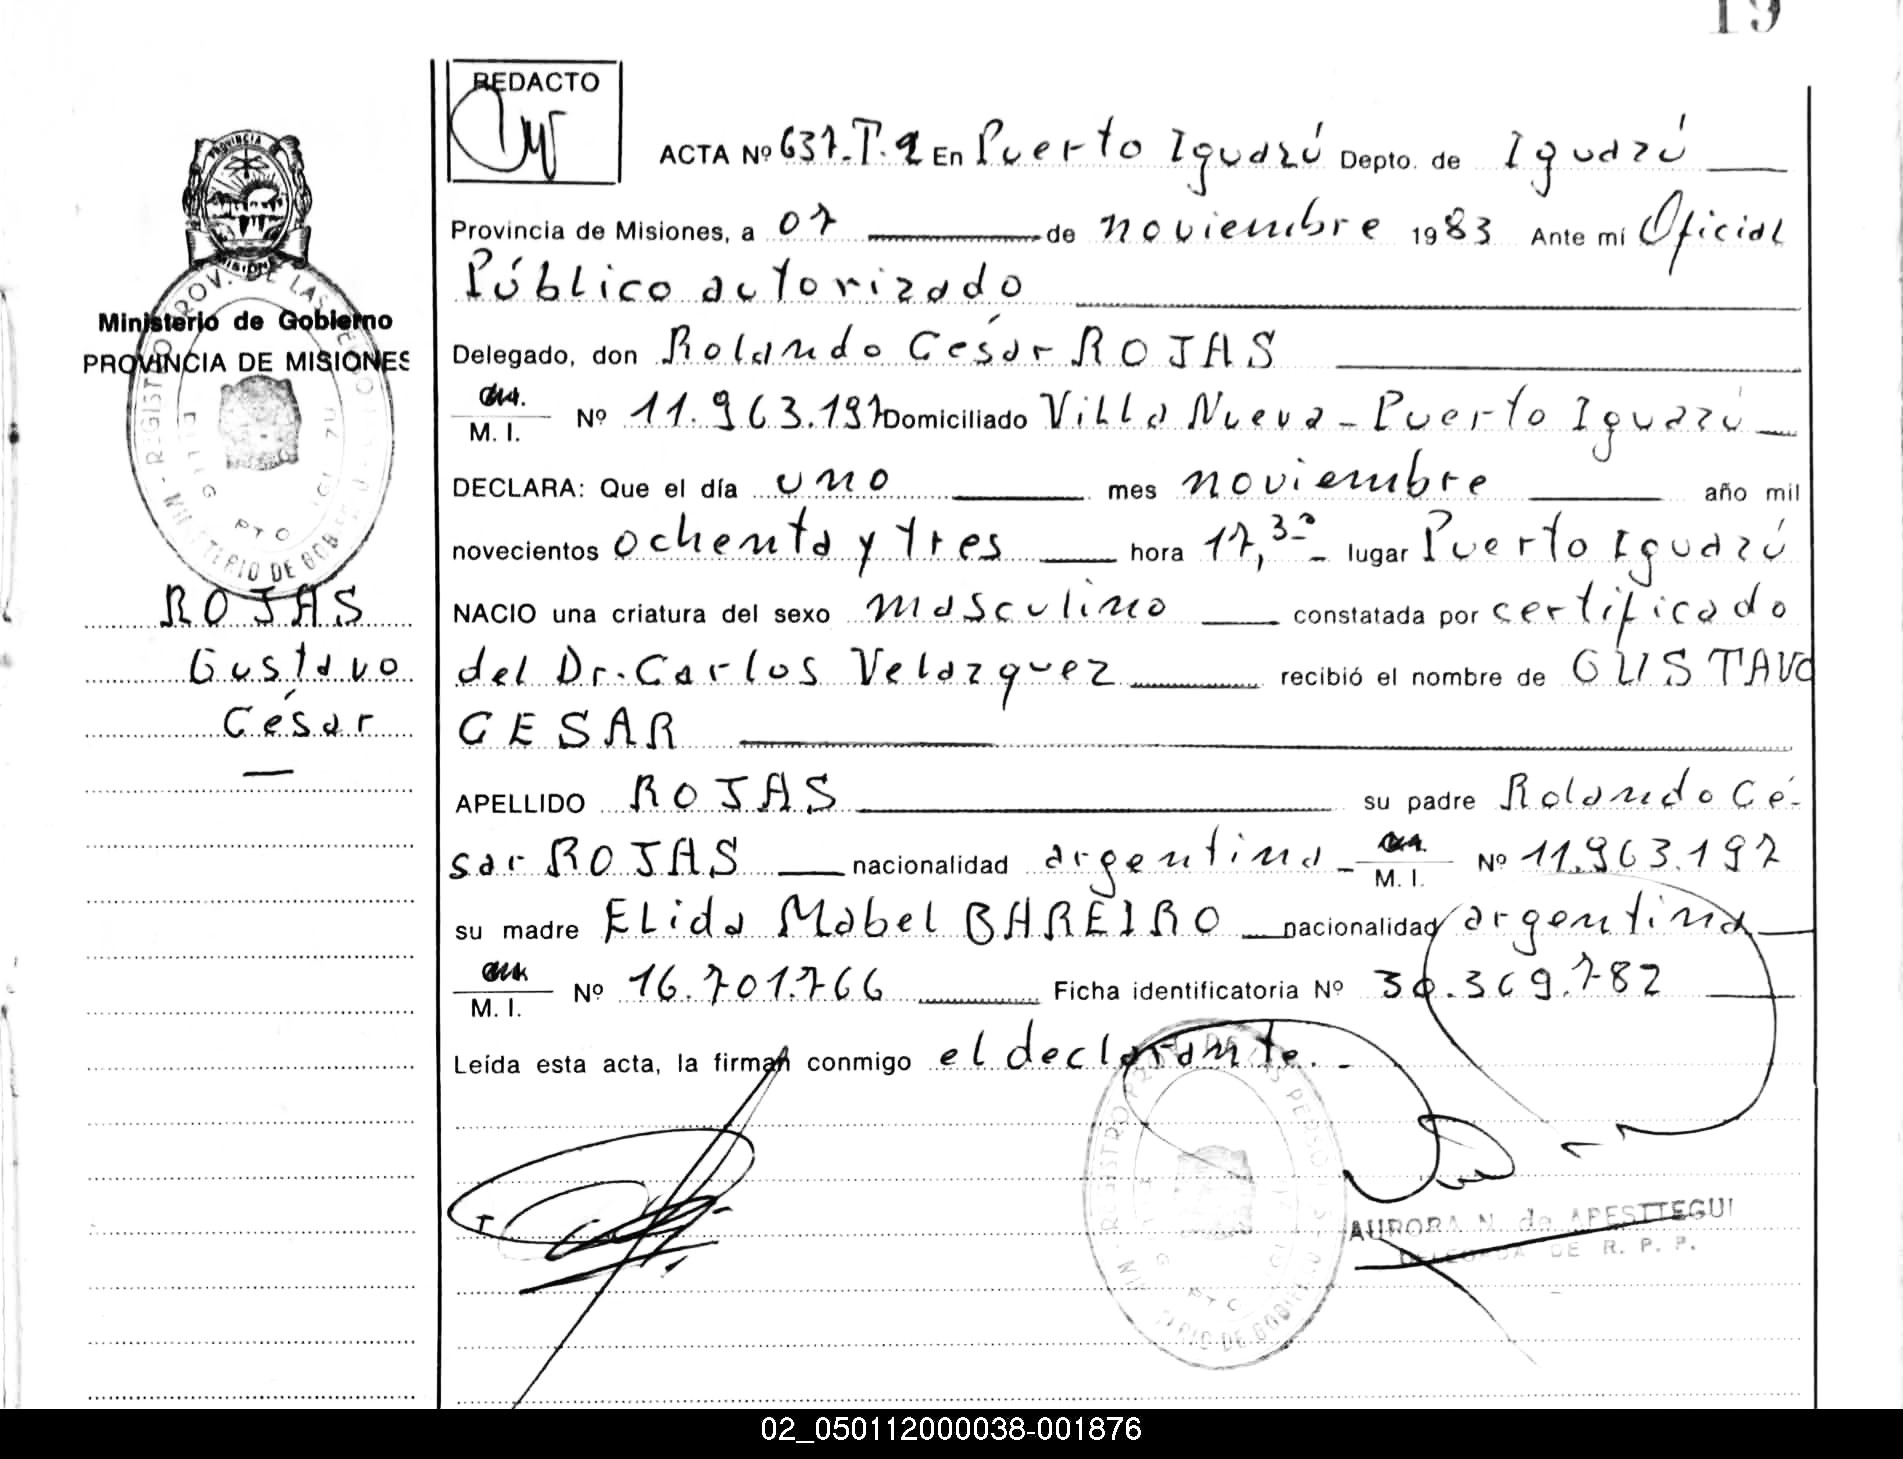 19
REDACTO
PROVINCIA
MISIONES
Ministerio de Gobierno
PROVINCIA DE MISIONES
ROJAS
Gustavo
César
ACTA Nº 637.T.2 En Puerto Iguazú Depto. de Iguazú
Provincia de Misiones, a 07 de noviembre 1983 Ante mí Oficial
Público autorizado
Delegado, don Rolando César ROJAS
M. I. Nº 11.963.197 Domiciliado Villa Nueva - Puerto Iguazú
DECLARA: Que el día uno mes noviembre año mil
novecientos ochenta y tres hora 17,30 lugar Puerto Iguazú
NACIO una criatura del sexo masculino constatada por certificado
del Dr. Carlos Velazquez recibió el nombre de GUSTAVO
CESAR
APELLIDO ROJAS su padre Rolando Cé-
sar ROJAS nacionalidad argentina - M. I. Nº 11.963.197
su madre Elida Mabel BAREIRO nacionalidad argentina
M. I. Nº 16.701.766 Ficha identificatoria Nº 30.369.782
Leída esta acta, la firman conmigo el declarante. -
AURORA N. de APESTTEGUI
DELEGADA DE R. P. P.
02_050112000038-001876